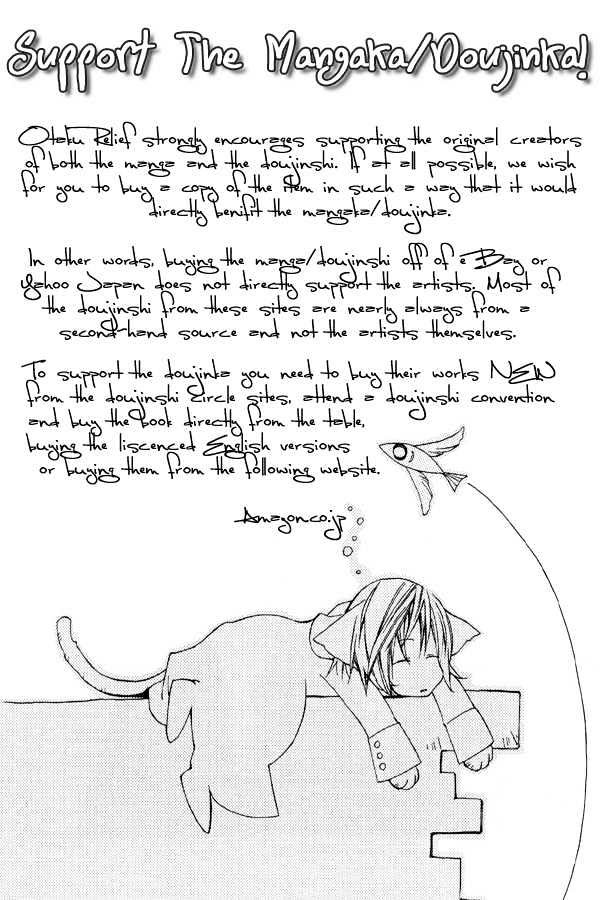 Support The Mangaka/Doujinka!
Otaku Relief strongly encourages supporting the original creators
of both the manga and the doujinshi. If at all possible, we wish
for you to buy a copy of the item in such a way that it would
directly benifit the mangaka/doujinka.
In other words, buying the manga/doujinshi off of eBay or
Yahoo Japan does not directly support the artists. Most of
the doujinshi from these sites are nearly always from a
second-hand source and not the artists themselves.
To support the doujinka you need to buy their works NEW
from the doujinshi circle sites, attend a doujinshi convention
and buy the book directly from the table,
buying the liscenced English versions
or buying them from the following website.
Amazon.co.jp